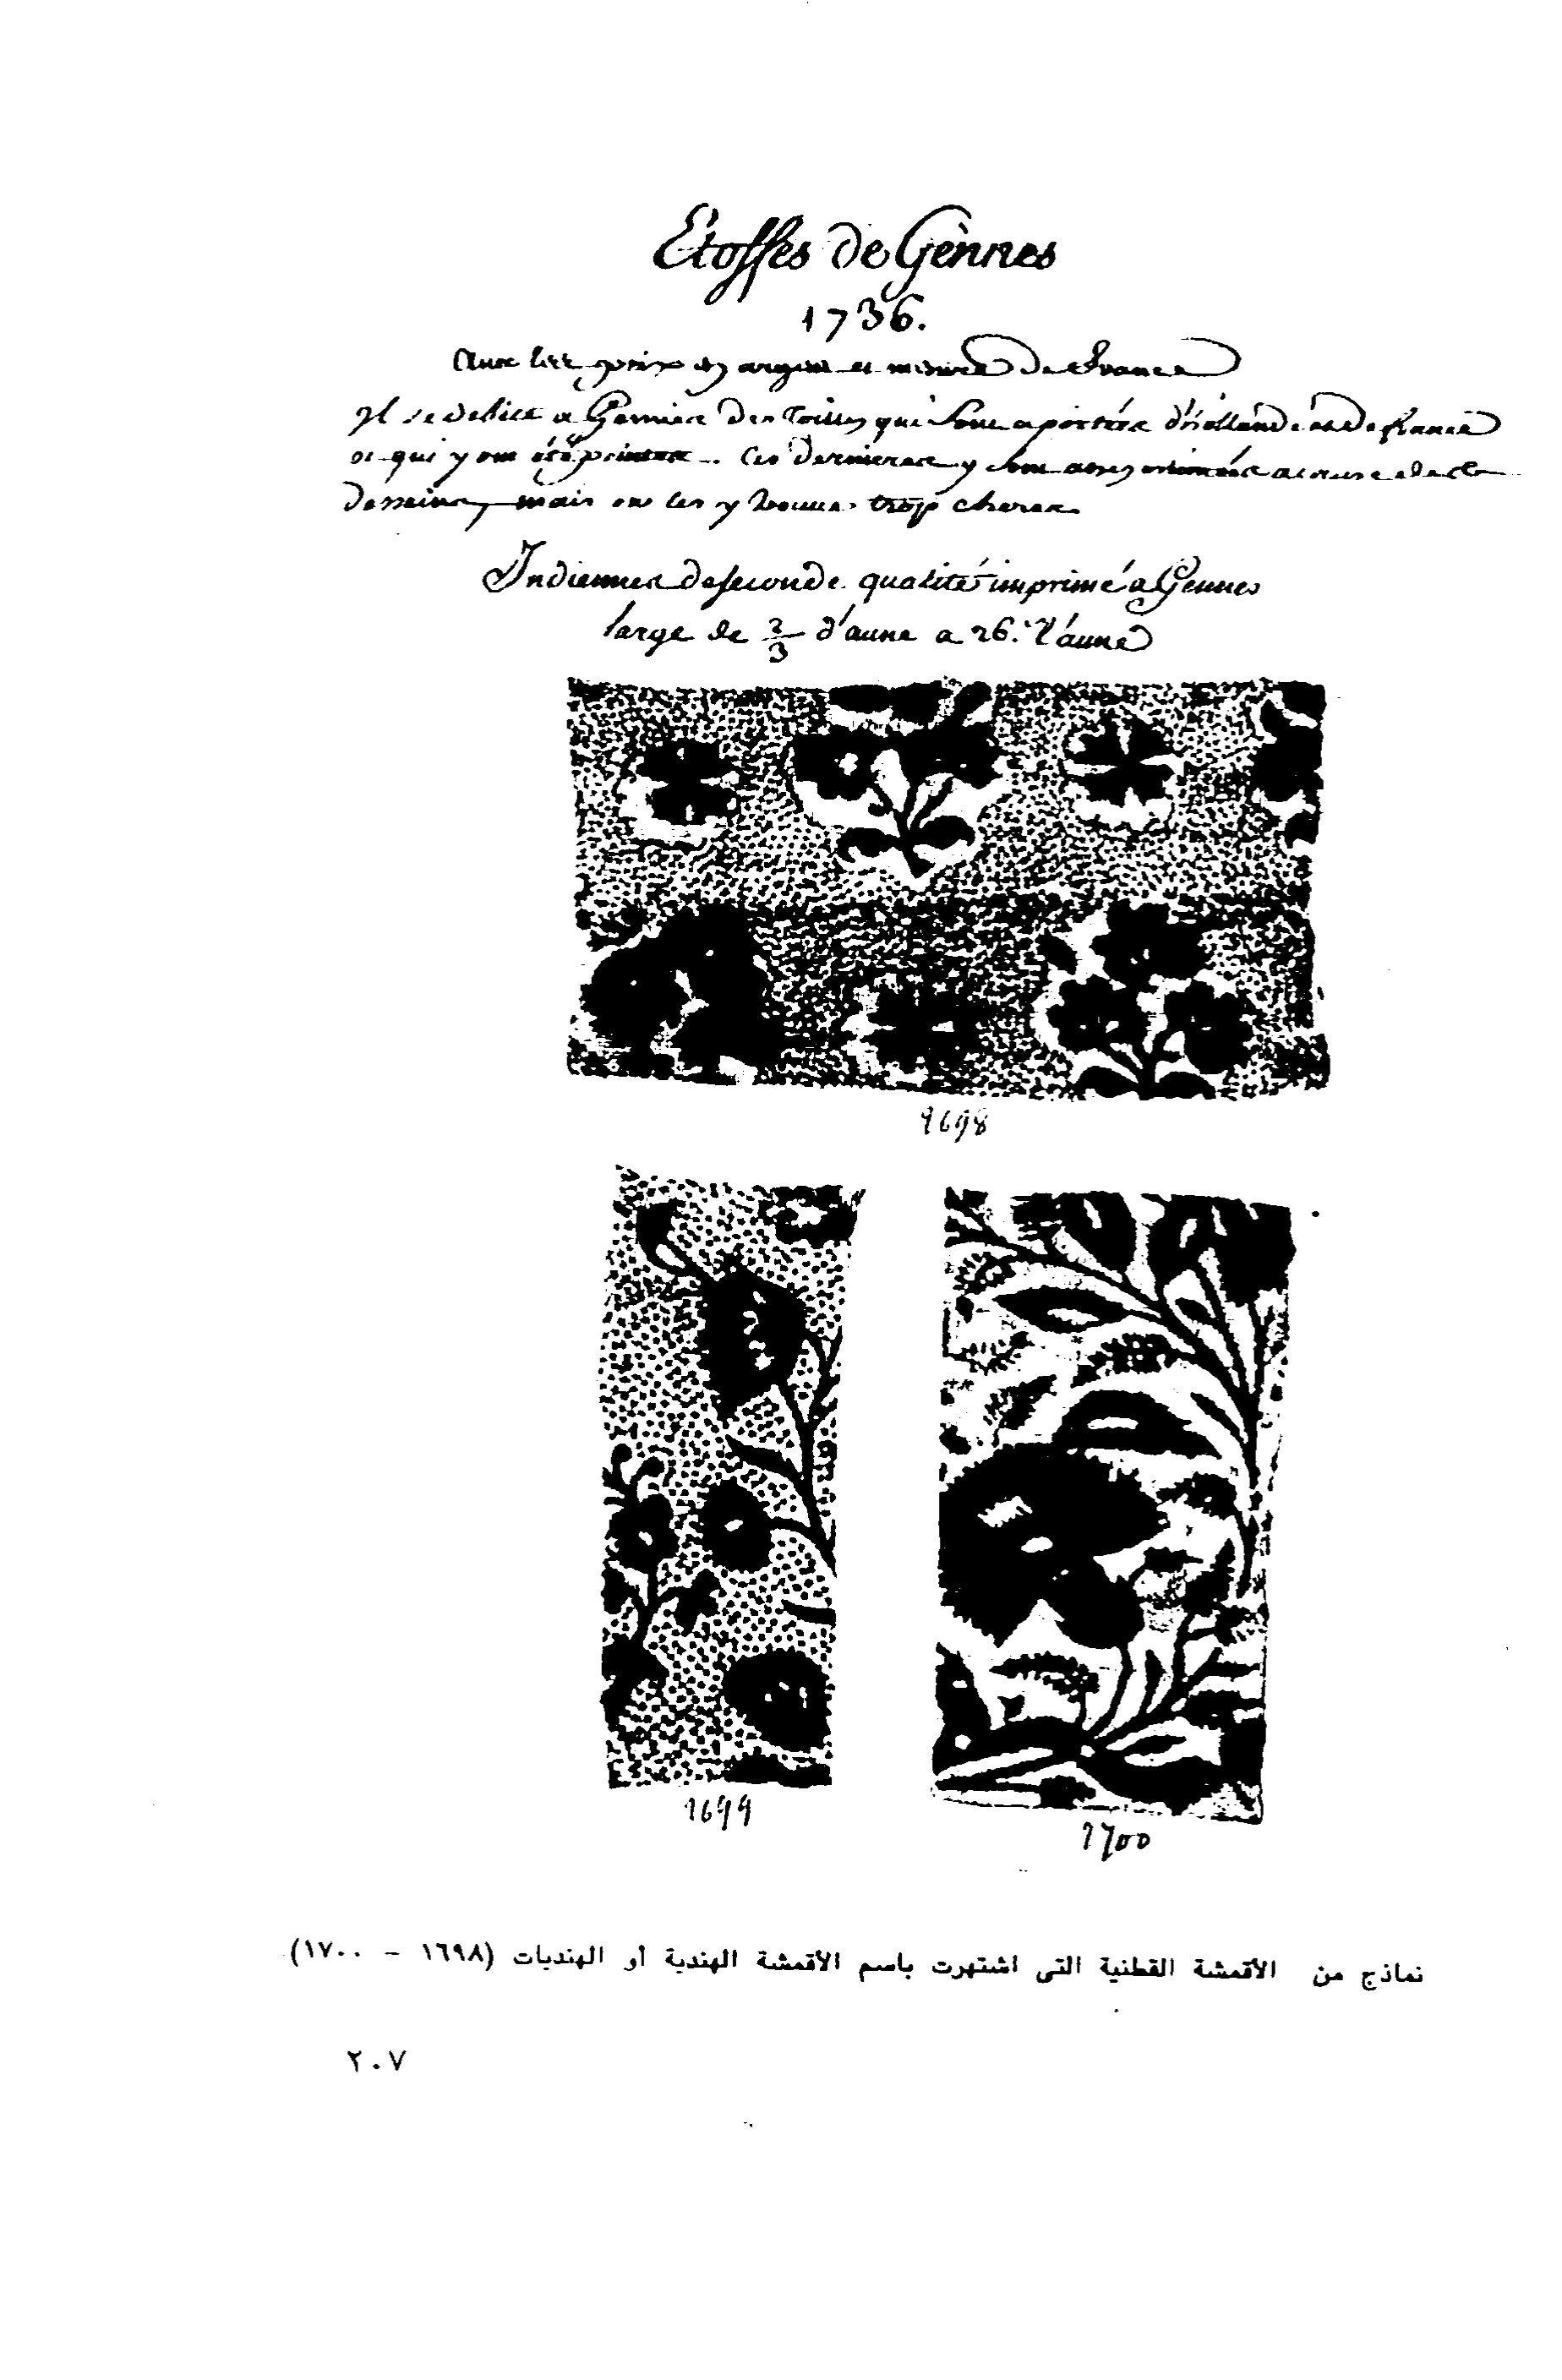 Etoffes de Gènnes
1736.
Avec les prix en argent et mesure de France
Il se debite a Gennes des Toilles qui sont aportées d'hollande et de france
et qui y ont été peintes. Ces dernieres y sont assés estimées a cause de
desseins, mais on les y trouve trop cheres
Indiennes de seconde qualité imprimé a Gennes
large de 2/3 d'aune a 26. l'aune
1698
1699
1700
نماذج من الأقمشة القطنية التى اشتهرت باسم الأقمشة الهندية أو الهنديات (١٦٩٨ - ١٧٠٠)
٢٠٧